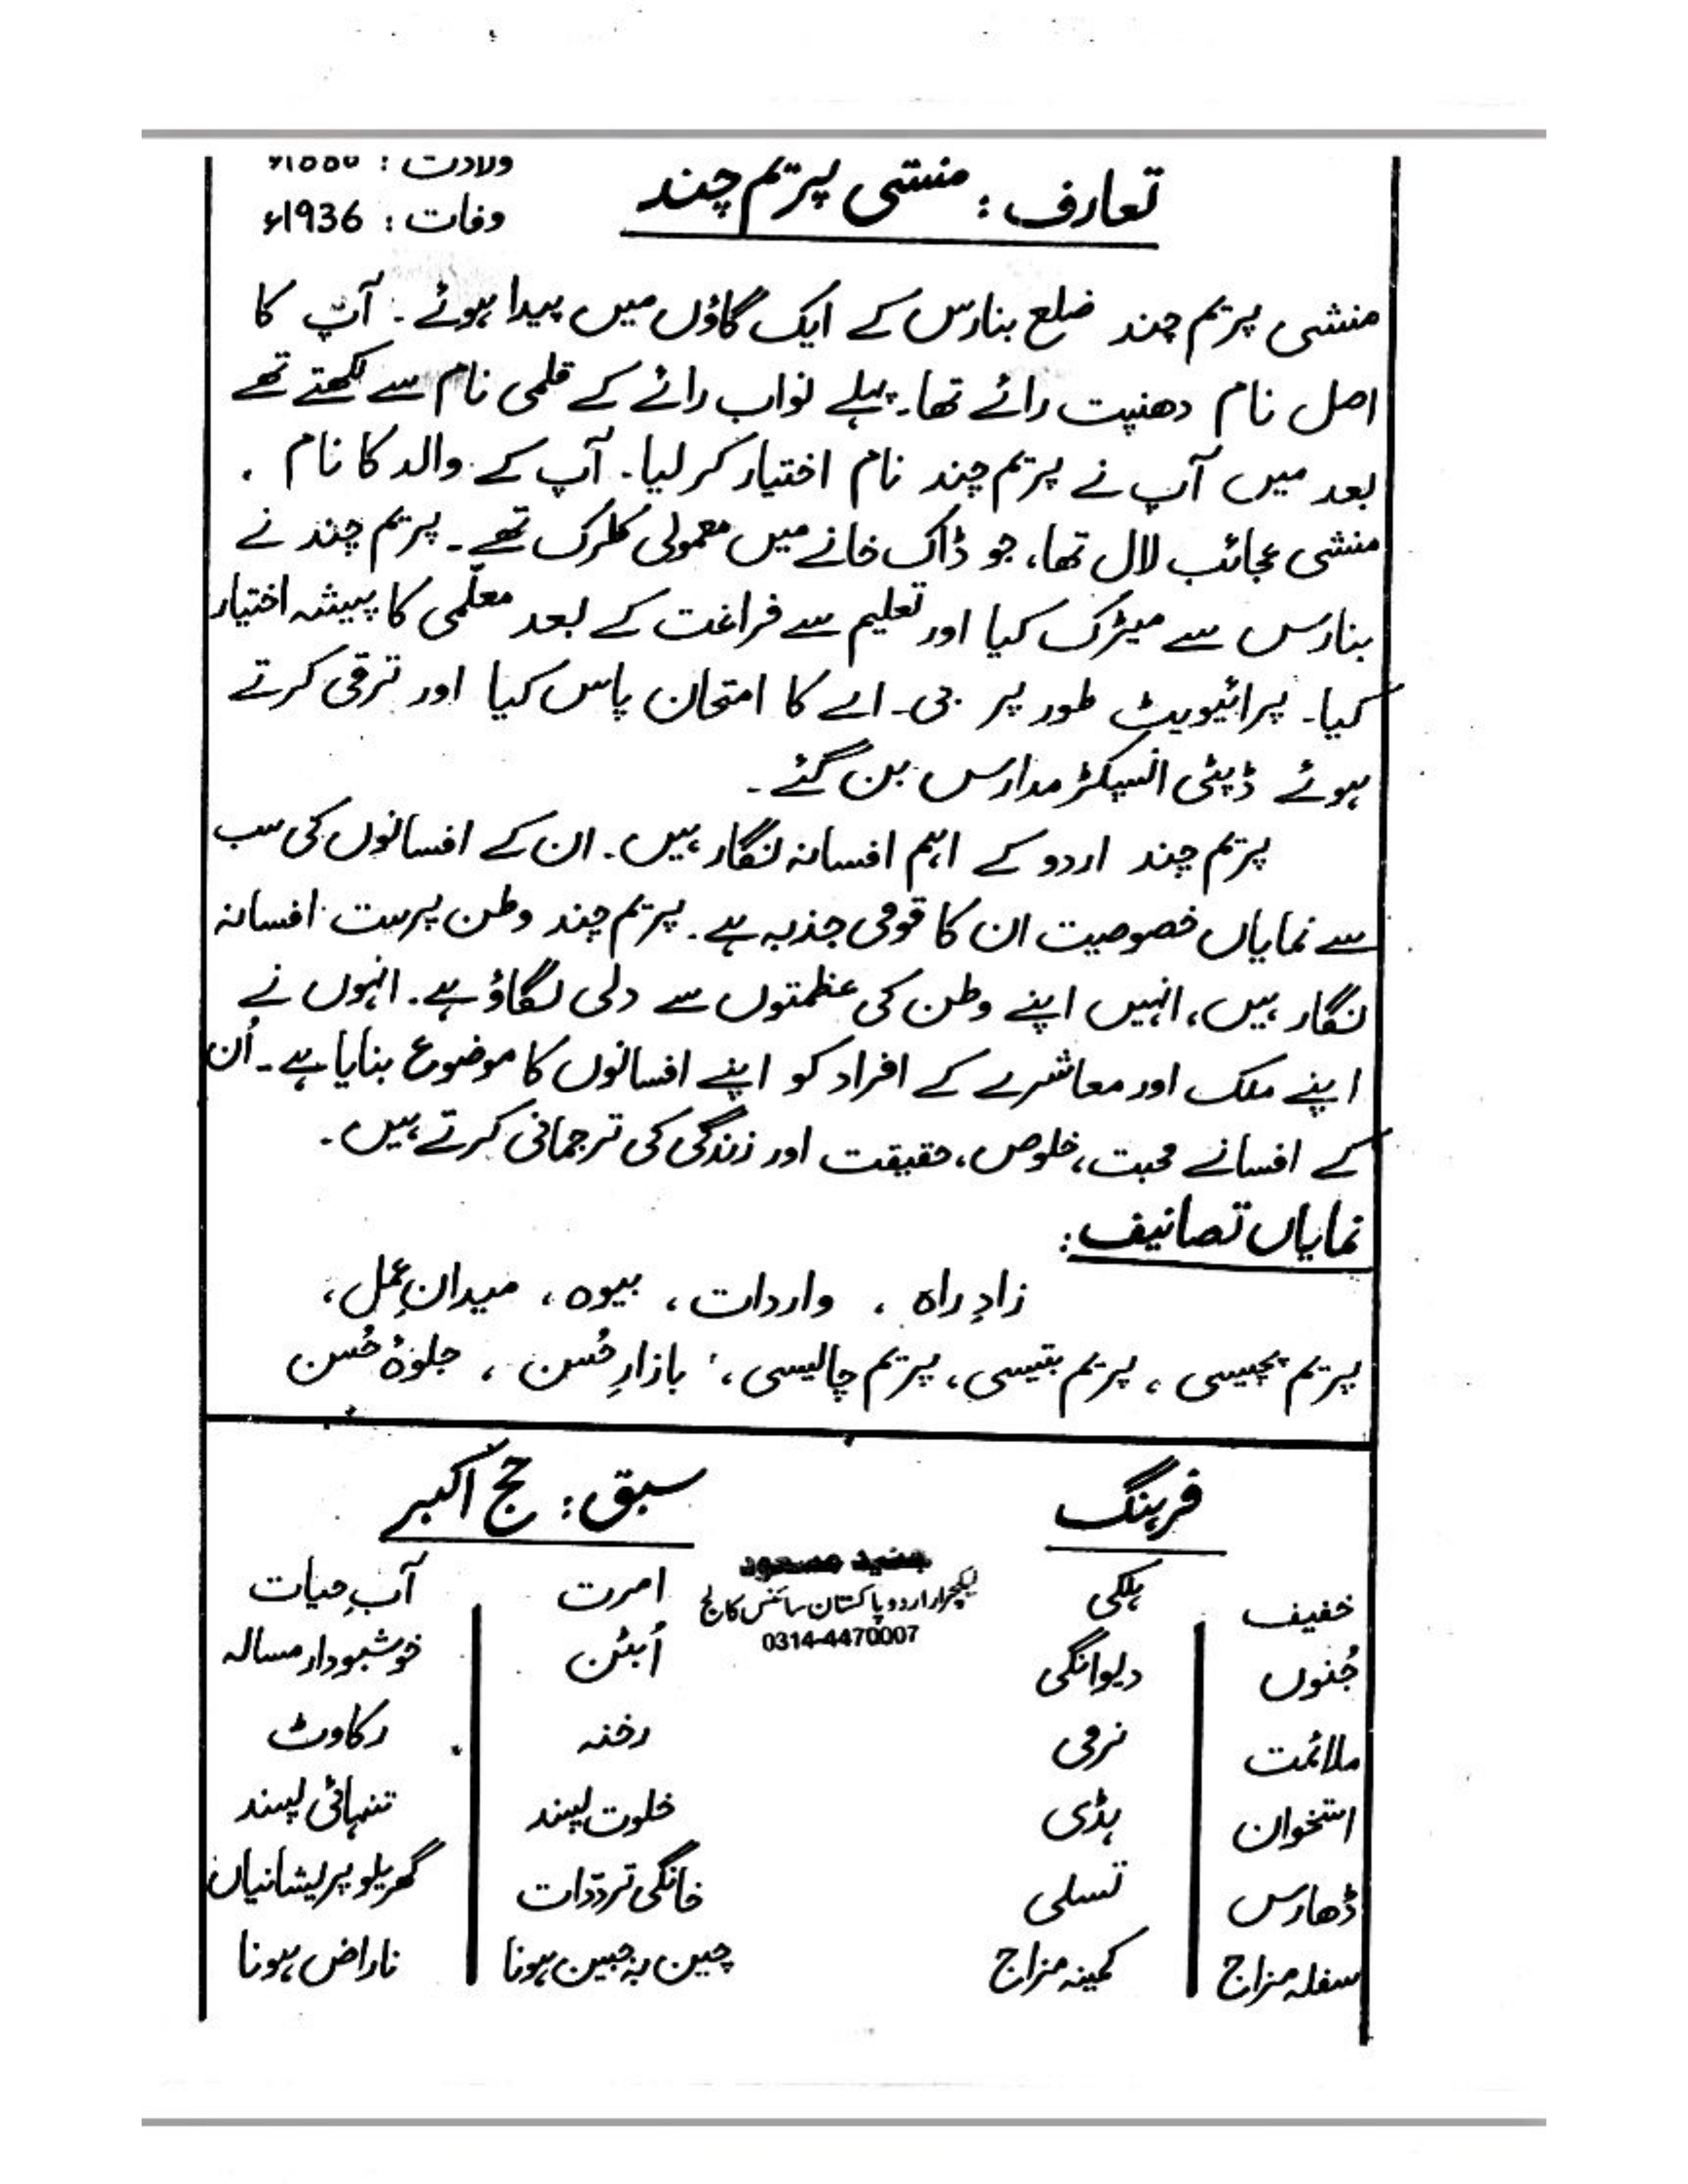 تعارف : منشی پریم چند
ولادت :
وفات : 1936ء
منشی پریم چند ضلع بنارس کے ایک گاؤں میں پیدا ہوئے۔ آپ کا
اصل نام دھنپت رائے تھا۔ پہلے نواب رائے کے قلمی نام سے لکھتے تھے
بعد میں آپ نے پریم چند نام اختیار کر لیا۔ آپ کے والد کا نام
منشی عجائب لال تھا، جو ڈاک خانے میں معمولی کلرک تھے۔ پریم چند نے
بنارس سے میٹرک کیا اور تعلیم سے فراغت کے بعد معلّمی کا پیشہ اختیار
کیا۔ پرائیویٹ طور پر بی۔اے کا امتحان پاس کیا اور ترقی کرتے
ہوئے ڈپٹی انسپکٹر مدارس بن گئے۔
پریم چند اردو کے اہم افسانہ نگار ہیں۔ ان کے افسانوں کی سب
سے نمایاں خصوصیت ان کا قومی جذبہ ہے۔ پریم چند وطن پرست افسانہ
نگار ہیں، انہیں اپنے وطن کی عظمتوں سے دلی لگاؤ ہے۔ انہوں نے
اپنے ملک اور معاشرے کے افراد کو اپنے افسانوں کا موضوع بنایا ہے۔ اُن
کے افسانے محبت، خلوص، حقیقت اور زندگی کی ترجمانی کرتے ہیں۔
نمایاں تصانیف :
زادِ راہ ، واردات ، بیوہ ، میدانِ عمل ،
پریم پچیسی ، پریم بتیسی ، پریم چالیسی ، بازارِ حُسن ، جلوۂ حُسن
فرہنگ
سبق : حج اکبر
جنید مسعود
لیکچرار اردو پاکستان سائنس کالج
0314-4470007
خفیف ہلکی
جُنوں دیوانگی
ملائمت نرمی
استخوان ہڈی
ڈھارس تسلی
سفلہ مزاج کمینہ مزاج
امرت آبِ حیات
اُبٹن خوشبودار مسالہ
رخنہ رکاوٹ
خلوت پسند تنہائی پسند
خانگی تردّدات گھریلو پریشانیاں
چین بہ جبین ہونا ناراض ہونا